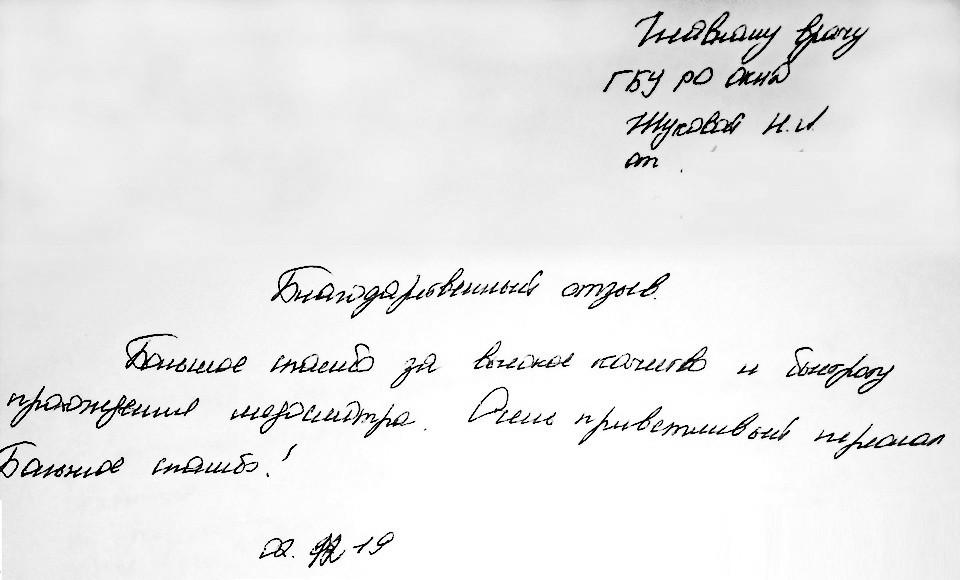 Главному врачу
ГБУ РО ОКНД
Жуковой Н.И.
от
Благодарственный отзыв.
Большое спасибо за высокое качество и быстроту
прохождения медосмотра. Очень приветливый персонал
Большое спасибо!
02. 12 19